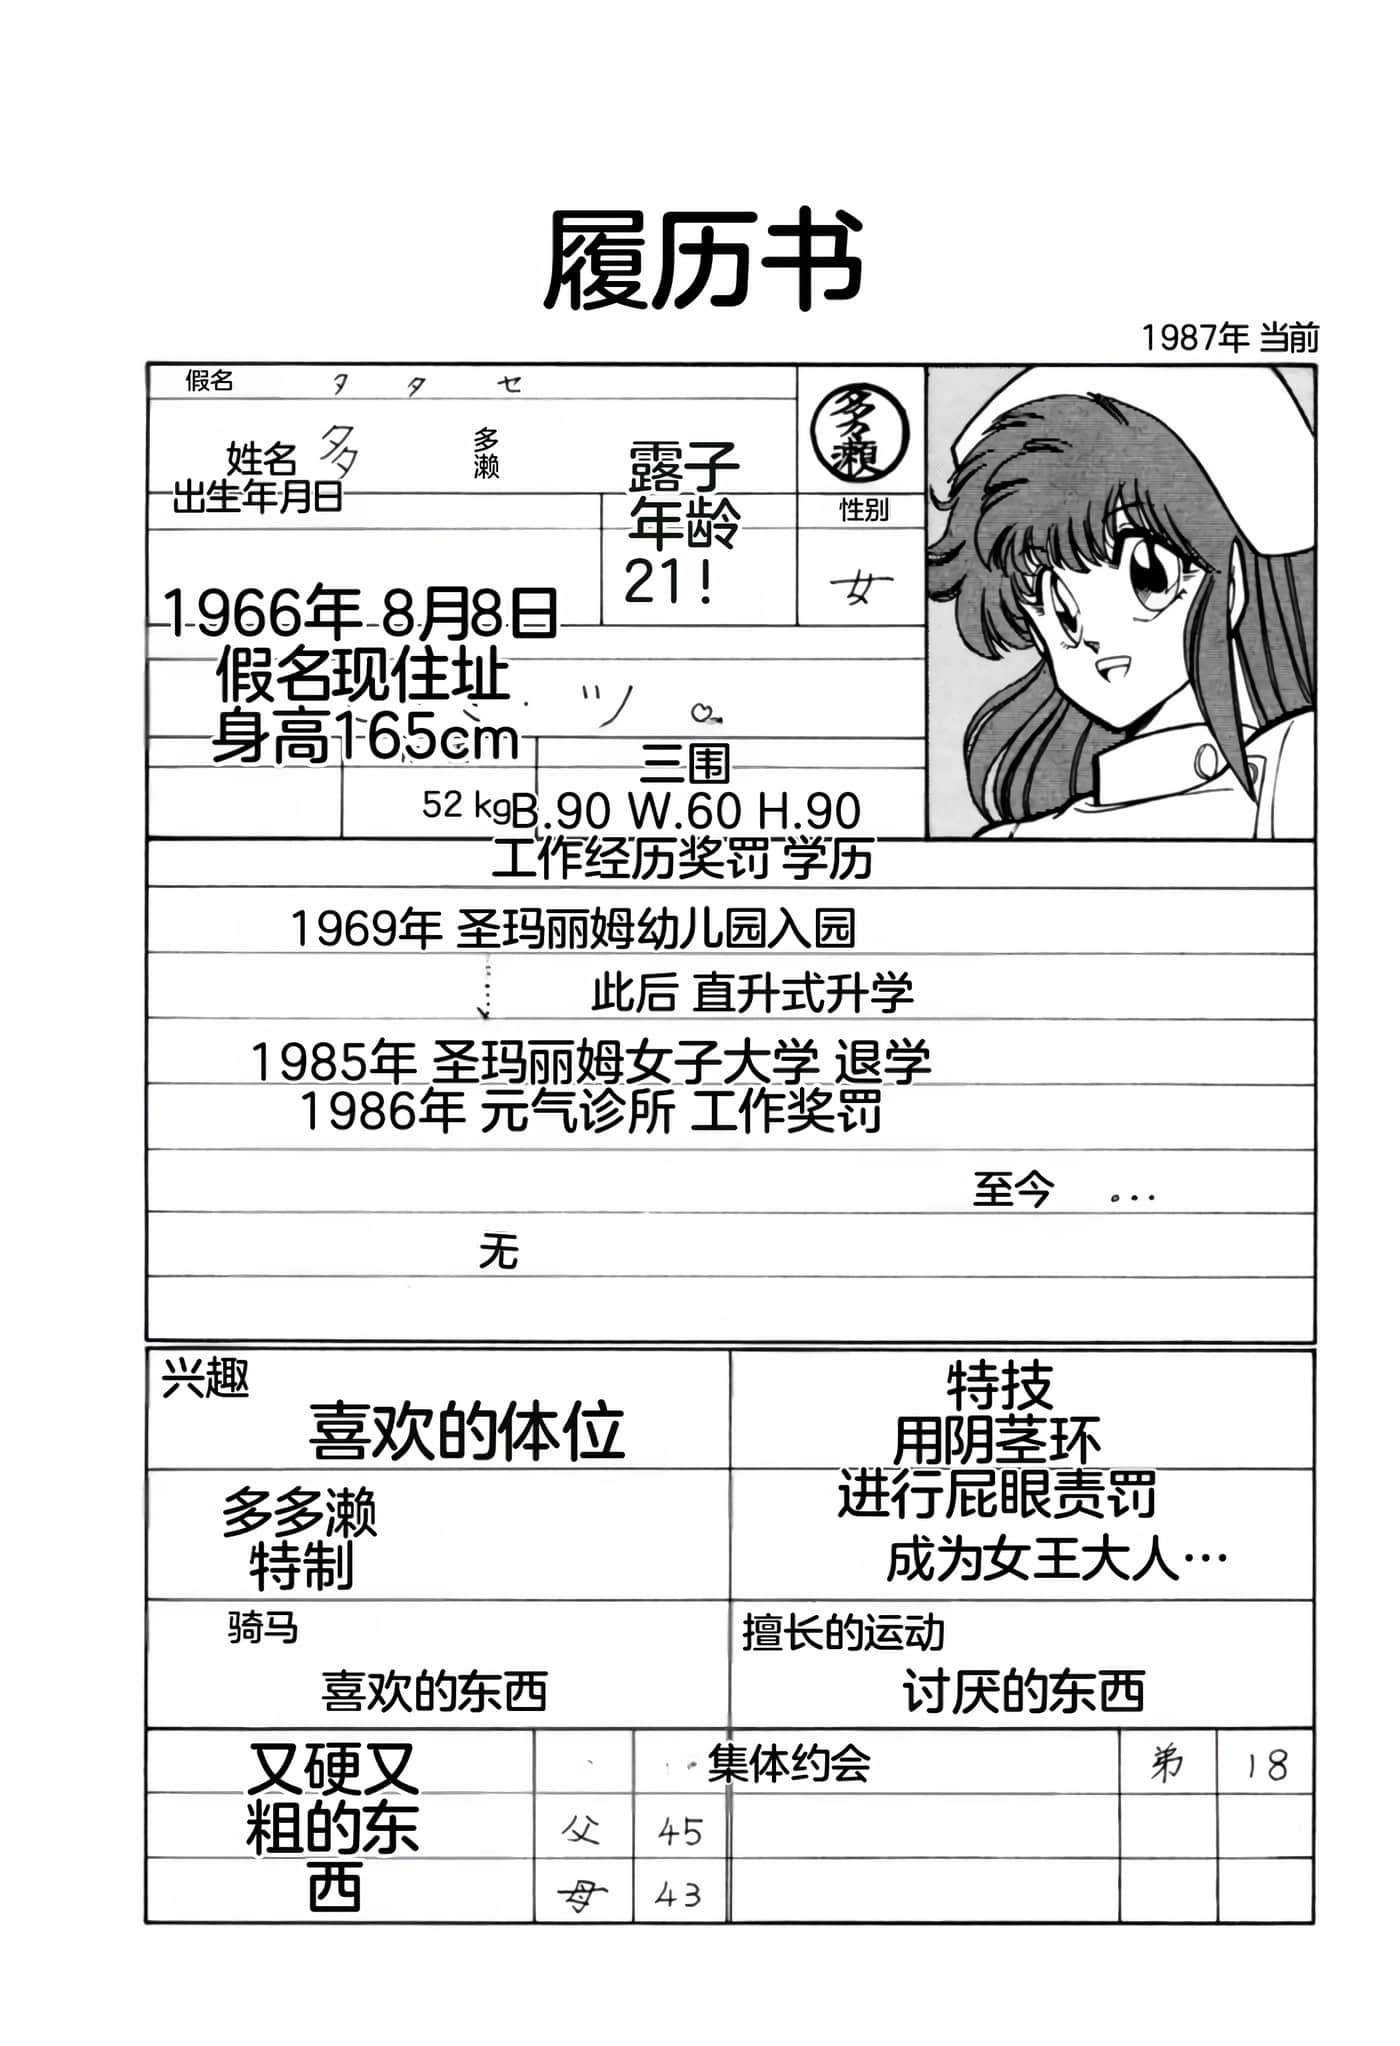 履历书
1987年 当前
假名 タ タ セ
姓名 多々
多濑
露子
多々瀬
出生年月日
年龄
性别
21！
女
1966年 8月8日
假名现住址
ツ
身高165cm
三围
52 kg
B.90 W.60 H.90
工作经历奖罚 学历
1969年 圣玛丽姆幼儿园入园
此后 直升式升学
1985年 圣玛丽姆女子大学 退学
1986年 元气诊所 工作奖罚
至今 …
无
兴趣
喜欢的体位
特技
用阴茎环
进行屁眼责罚
成为女王大人…
多多濑
特制
骑马
喜欢的东西
擅长的运动
讨厌的东西
又硬又
粗的东
西
集体约会
弟 18
父 45
母 43